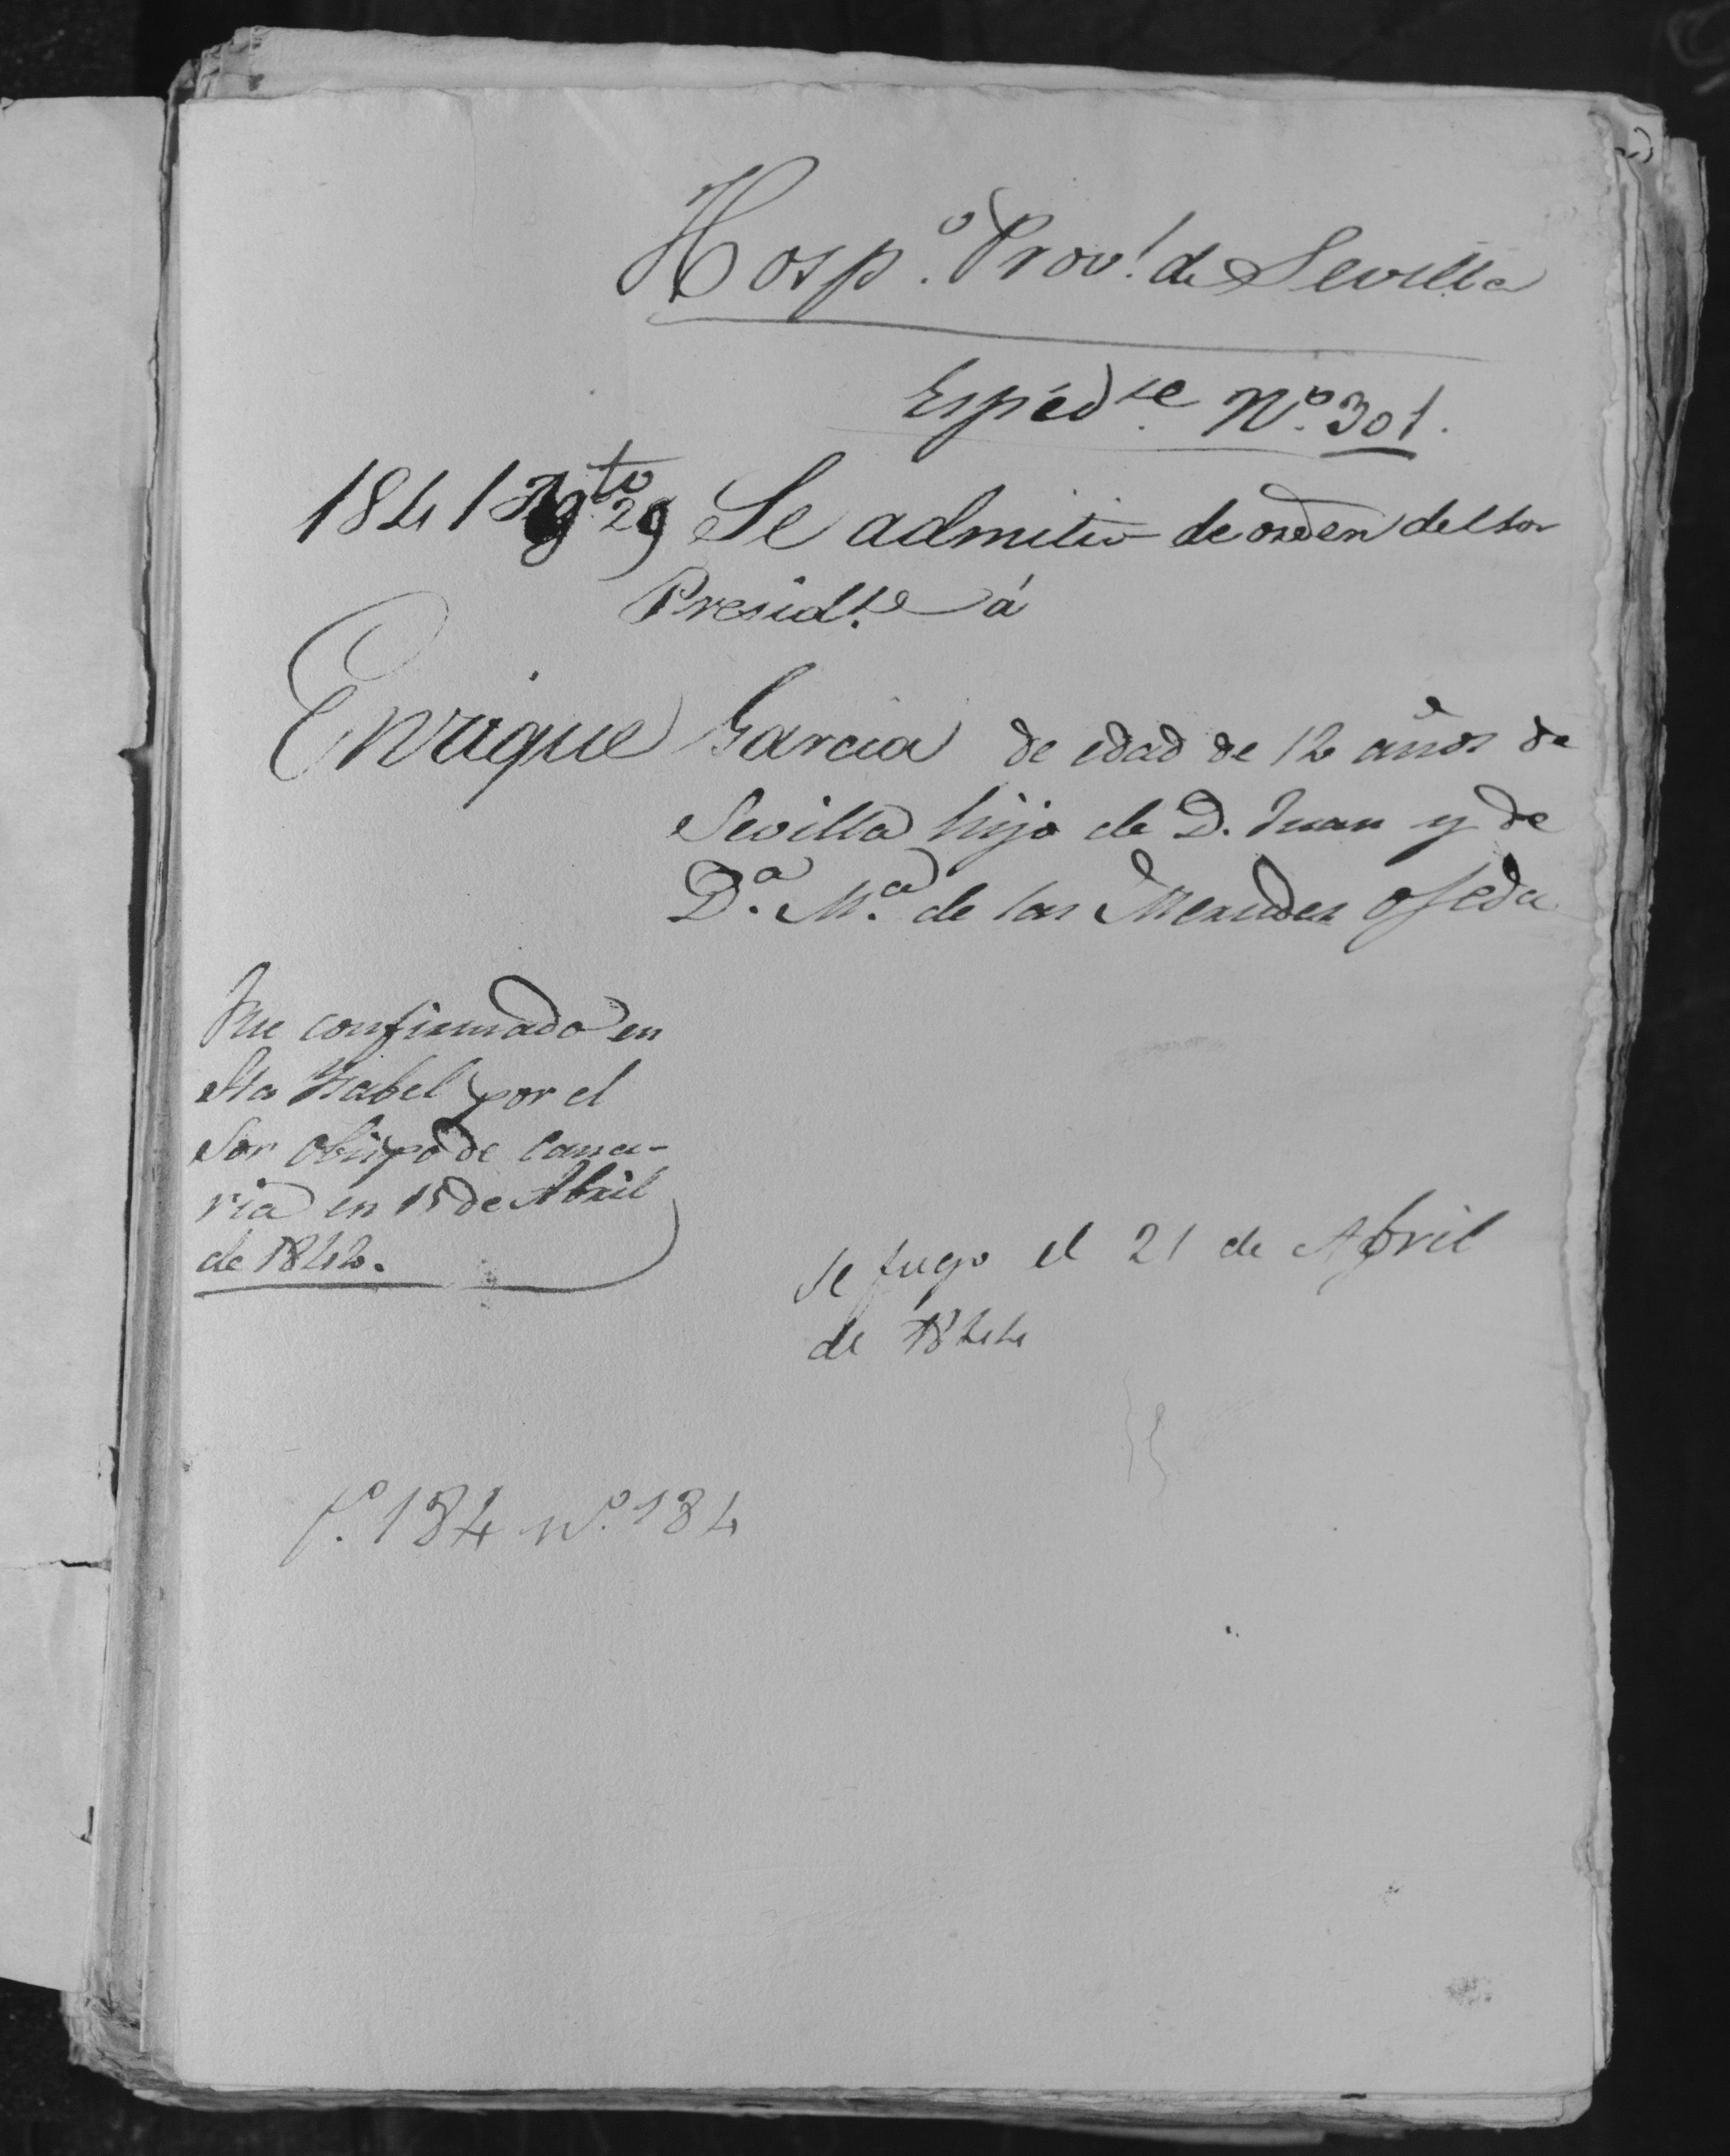 Hosp.º Prov.l de Sevilla
Espéd.te Nº. 301.
1841 Agto 29 Se admitio de orden del Sor
Presid.te á
Enrique Garcia de edad de 12 años de
Sevilla hijo de D. Juan y de
D.ª M.ª de las Mercedes Ojeda
Fue confirmado en
Sta Ysabel por el
Sor Obispo de Cana-
ria en 15 de Abril
de 1842.
Se fugo el 21 de Abril
de 1844
f.º 184 nº. 184